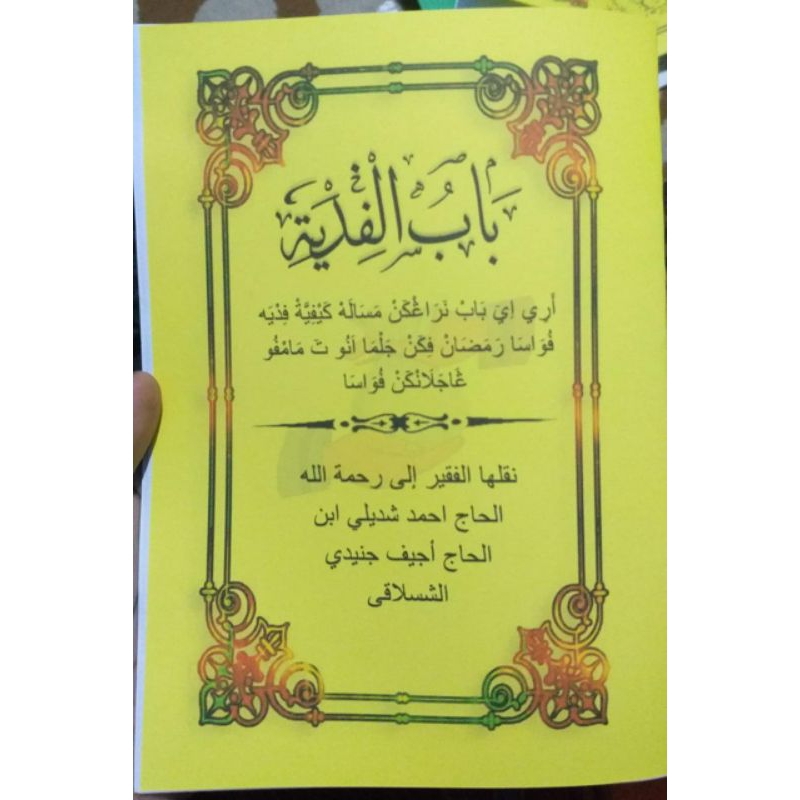 بَابُ الْفِدْيَةِ
أَرِي اِيَ بَابْ نَرَاڠْكَنْ مَسَالَهْ كَيْفِيَّةْ فِدْيَه
فُوَاسَا رَمَضَانْ فِكَنْ جَلْمَا اَنُو تَ مَامْفُو
ڠَاجَلَانْكَنْ فُوَاسَا
نقلها الفقير إلى رحمة الله
الحاج احمد شديلي ابن
الحاج أجيف جنيدي
الشسلاقى